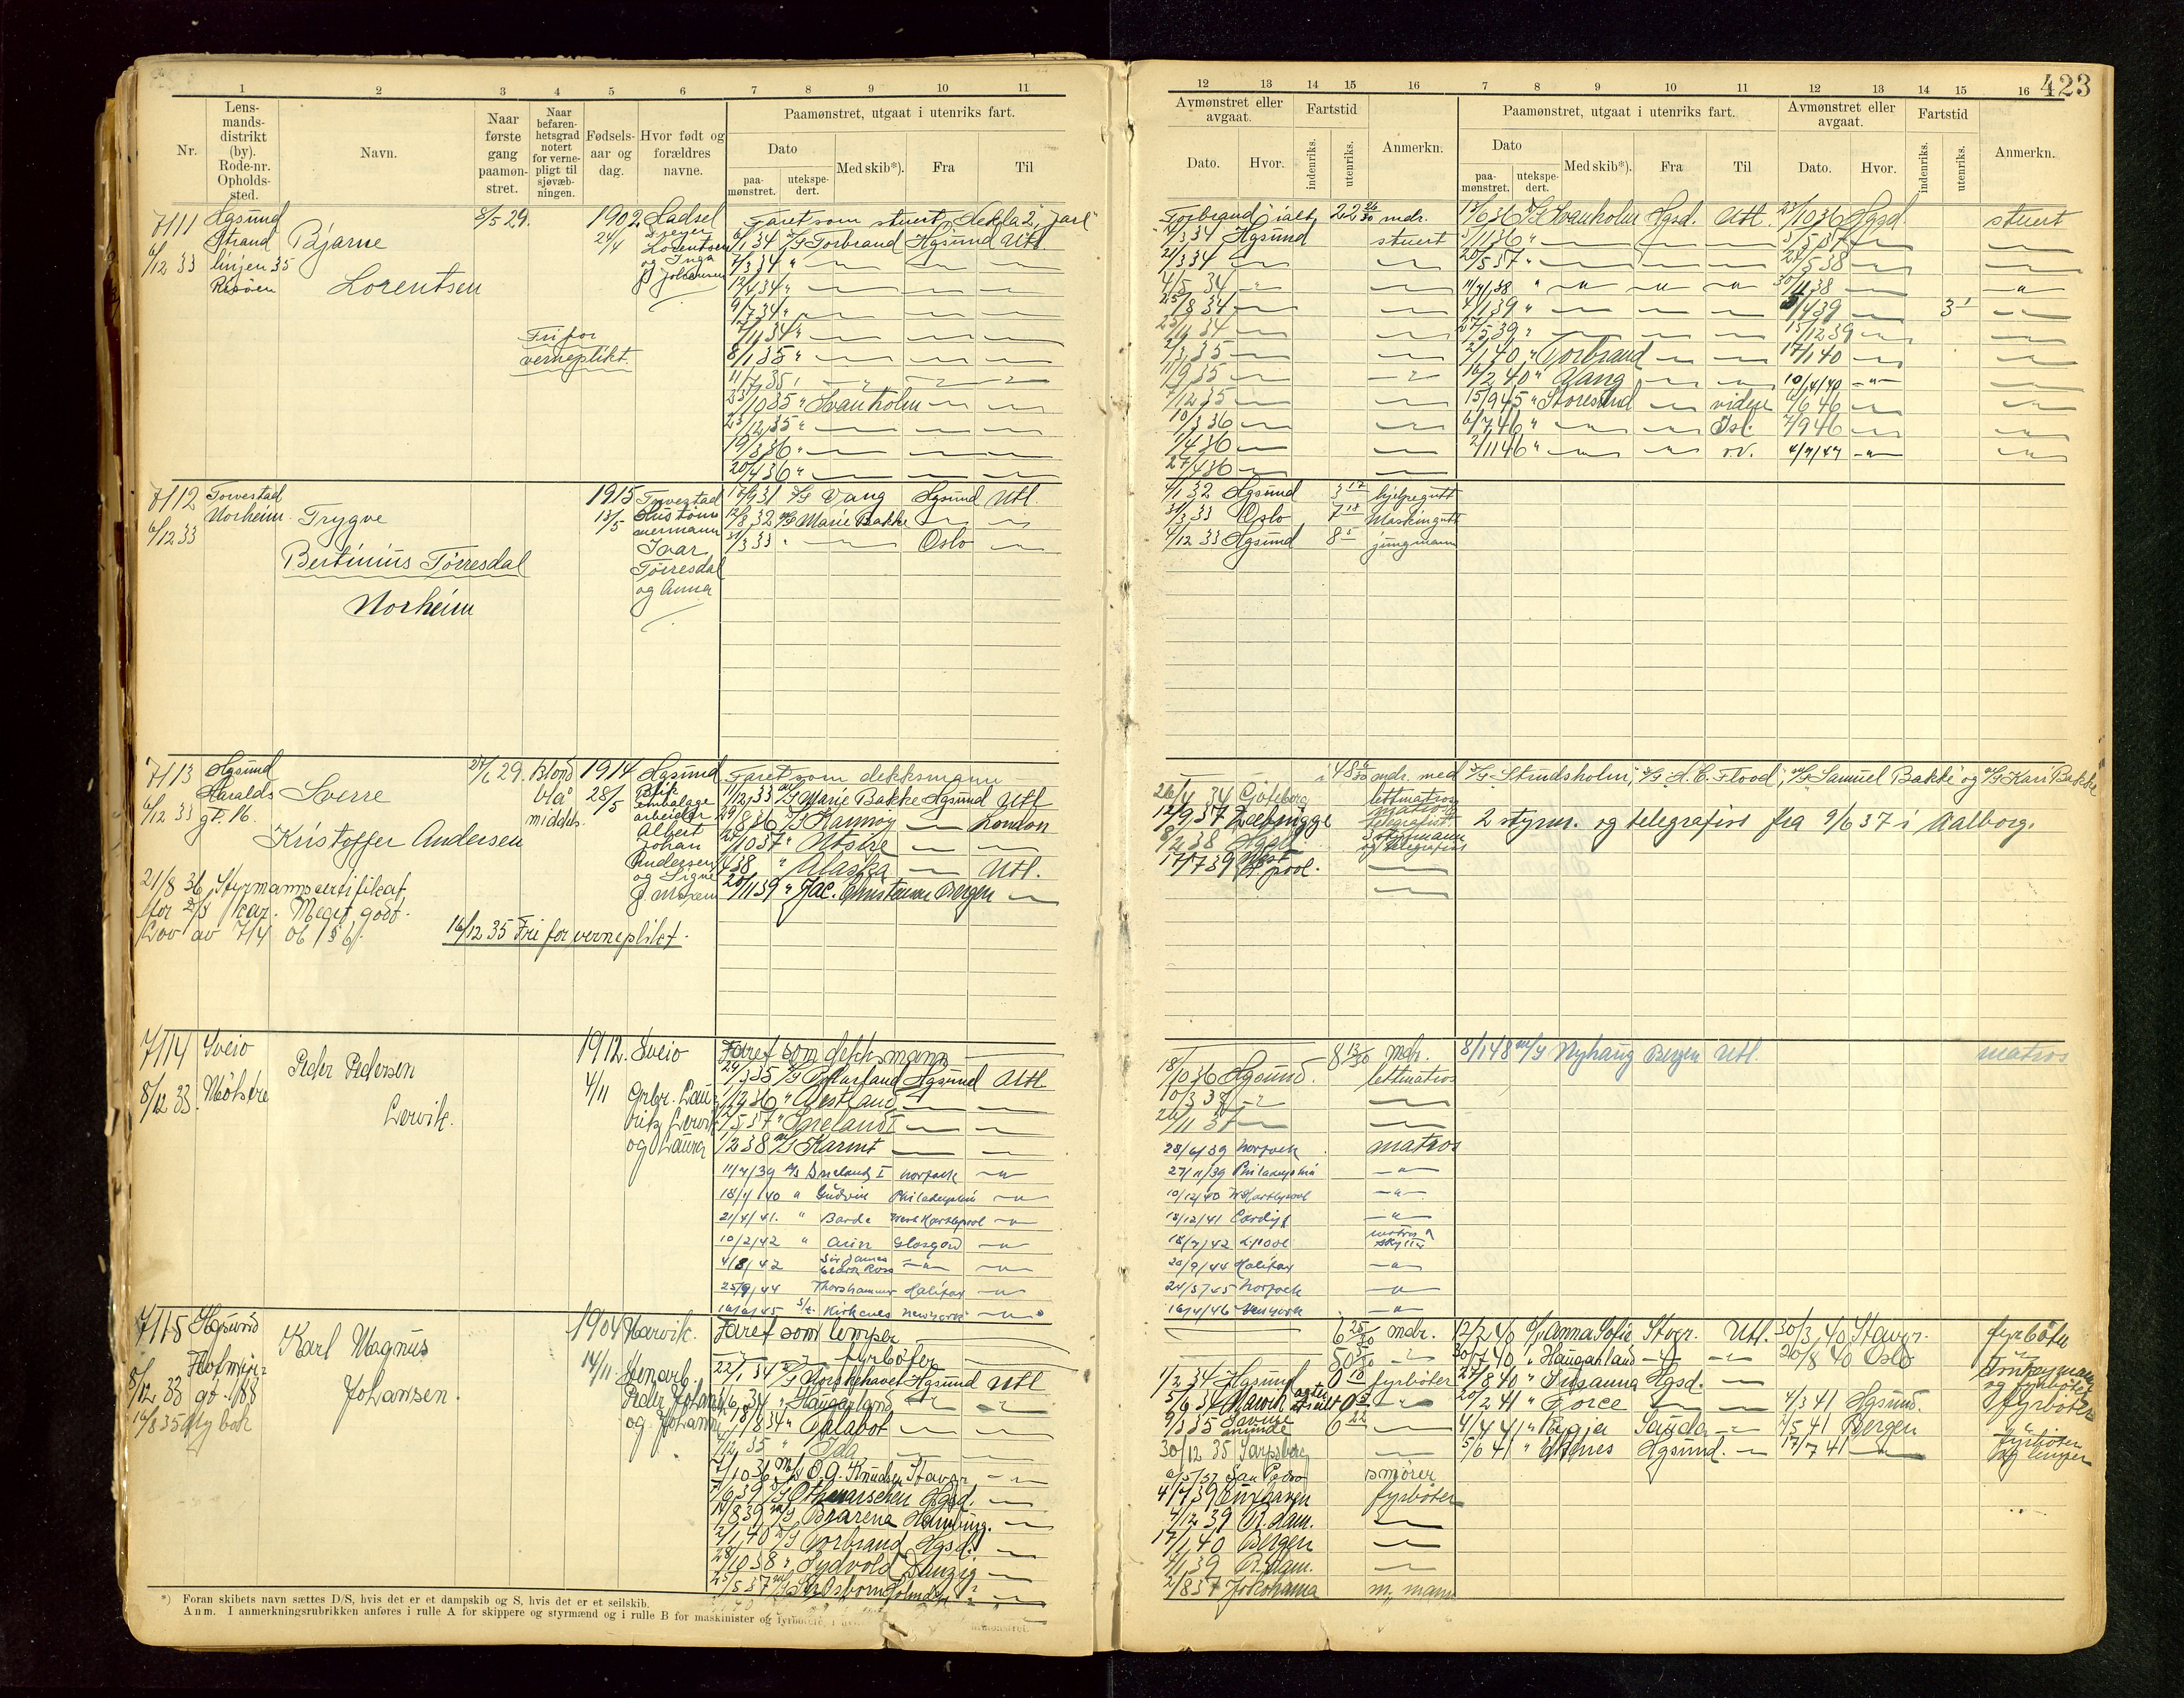 423
1 2 3 4 5 6 7 8 9 10 11
Nr.
Lensmandsdistrikt (by). Rode-nr. Opholdssted.
Navn.
Naar første gang paamønstret.
Naar befarenhetsgrad notert for vernepligt til sjøvæbningen.
Fødselsaar og dag.
Hvor født og forældres navne.
Paamønstret, utgaat i utenriks fart.
Dato
paamønstret.
utekspedert.
Med skib*).
Fra
Til
12 13 14 15 16 7 8 9 10 11 12 13 14 15 16
Avmønstret eller avgaat.
Dato.
Hvor.
Fartstid
indenriks.
utenriks.
Anmerkn.
Paamønstret, utgaat i utenriks fart.
Dato
paamønstret.
utekspedert.
Med skib*).
Fra
Til
Avmønstret eller avgaat.
Dato.
Hvor.
Fartstid
indenriks.
utenriks.
Anmerkn.
7111
6/12 33
Hgsund
Strand
linjen 35
Risøen
Bjarne
Lorentsen
Fri for
verneplikt.
8/5 29.
1902
24/4
Hadsel
Lorentsen
og Inga
f. Johansen
Faret som stuert "Hekla" 2, "Jarl"
6/1 34 D/S Torbrand Hgsund Utl
7/3 34 "
12/4 34 "
9/7 34 "
7/11 34 "
8/1 35 "
11/7 35 "
23/10 35 " Svanholm
23/12 35 "
19/3 36 "
20/4 36 "
Torbrand ialt 22 26/30 mdr.
14/3 34 Hgsund stuert
21/3 34
4/5 34
25/8 34
23/11 34
2/3 35
11/9 35
7/12 35
10/3 36
1/4 36
27/4 36
13/6 36 D/S Svanholm Hgsd. Utl. 23/10 36 Hgsd. stuert
3/11 36 " 3/5 37
20/5 37 " 24/5 38
11/7 38 " 30/11 38
4/1 39 " 5/4 39 3
27/5 39 " 15/12 39
2/1 40 " Torbrand 17/1 40
16/2 40 " Vang 10/4 40
15/9 45 " Storesund videre 4/6 46
6/7 46 " Isl. 7/9 46
2/11 46 " n.v. 4/7/47
7112
6/12 33
Torvestad
Norheim
Trygve
Bertinius Tørresdal
Norheim
1915
13/5
Torvestad
Ivar
Tørresdal
og Anna
17/9 31 D/S Vang Hgsund Utl.
12/8 32 M/S Marie Bakke
31/3 33 " Oslo
4/1 32 Hgsund 3 17 hjelpegutt
31/3 33 Oslo 7 18 Maskingutt
4/12 33 Hgsund 8 5 jungmann
7113
6/12 33
Hgsund
Haralds
gt. 16.
Sverre
Kristoffer Andersen
21/8 36 Styrmannscertifikat
for 2/3 kar. Meget godt.
Lov av 7/4 06 § 6.
16/12 35 Fri for verneplikt.
27/6 29.
Blond
blå
middels
1914
28/5
Hgsund
Blik
embalage
arbeider
Albert
Johan
Andersen
og Signe
Faret som dekksmann
11/12 33 M/S Marie Bakke Hgsund Utl
29/8 36 D/S Karmøy London
20/10 37 " Utsire
4 38 " Alaska Utl.
20/11 39 " Jac. Christensen Bergen
i 48 mdr. med D/S Strudsholm, D/S H. C. Flood, M/S Samuel Bakke og M/S Kari Bakke
26/4 34 Göteborg lettmatros
12/9 37 Zeebrügge telegrafist 2 styrm. og telegrafist fra 9/6 37 i Aalborg.
8/2 38 Hgsd. 3 styrmann og telegrafist
17/7 39 West H. pool.
7114
8/12 33.
Sveio
Møkstre
Peder Pedersen
Lervik.
1912.
4/11
Sveio
Grbr. Lauritz Lervik
og Laura
Faret som dekksmann
29/3 35 Hgsund Utl
1/12 36 " Vestland
12/5 37 " Grelandt
1/2 38 M/S Karmt
11/7/39 Norfolk
18/1 40 " Gudvin Philadelphia
21/4/41. " Barda West Hartlepool
10/2/42 " Arin Glasgow
4/8/42 Sir James Clark Ross
25/9/44 Thorshammer Halifax
16/6/45 S/S Kirkenes New York
8 13/30 mdr.
18/10 36 Hgsund. lettmatros
10/3 37
26/11 37
28/6/39 Norfolk matros
27/11/39 Philadelphia
10/12/40 W Hartlepool
13/12/41 Cardiff
18/7/42 L.pool matros
20/9/44 Halifax
24/5/45 Norfolk
16/4/46 New York
8/1 48 M/S Nyhaug Bergen Utl. matros
7115
8/12 33
16/8 35 Ny bok
Hgsund
Flotmyr-
gt. 188
Karl Magnus
Johansen.
1904
14/11
Narvik.
Stenarb.
Peder Johansen
og Johanna
Faret som lemper
fyrbøter
22/1 34 D/S Torskehavet Hgsund Utl
34 " Haugarland
18/8 34 " Talabot
35 " Ida
7/10 36 M/S O. A. Knudsen Stavgr
7/6 39 D/S Othmarschen Hgsd.
14/8 39 M/S Bjarena Hamburg.
2/1 40 D/S Torbrand Hgsd.
28/10 38 " Sydvold Danzig
25/5 37 M/S Sir Osborn Holmden
6 25/30 mdr.
1/2 34 Hgsund 0 10 fyrbøter
5/6 34 Narvik
9/3 35 6 22
30/12 35 Sarpsborg
6/5/37 San Pedro smører
4/7 39 Cuxhaven fyrbøter
7/12 39 R.dam.
17/1 40 Bergen
4/1 39 R.dam.
2/8 37 Yokohama m. mann
12/2 40 D/S Anna Sofie Stvgr. Utl. 30/3 40 Stavgr. fyrbøter
30/7 40 " Haugarland 20/8 40 Oslo
27/8 40 " Susanna Hgsd. Donkeymann og fyrbøter
20/2 41 " Force 4/3 41 Hgsund. fyrbøter
4/4 41 " Regja Sauda 2/5 41 Bergen "
5/6 41 " Ekornes Hgsund. 17/7 41 fyrbøter og lemper
*) Foran skibets navn sættes D/S, hvis det er et dampskib og S, hvis det er et seilskib.
Anm. I anmerkningsrubrikken anføres i rulle A for skippere og styrmænd og i rulle B for maskinister og fyrbøtere, i